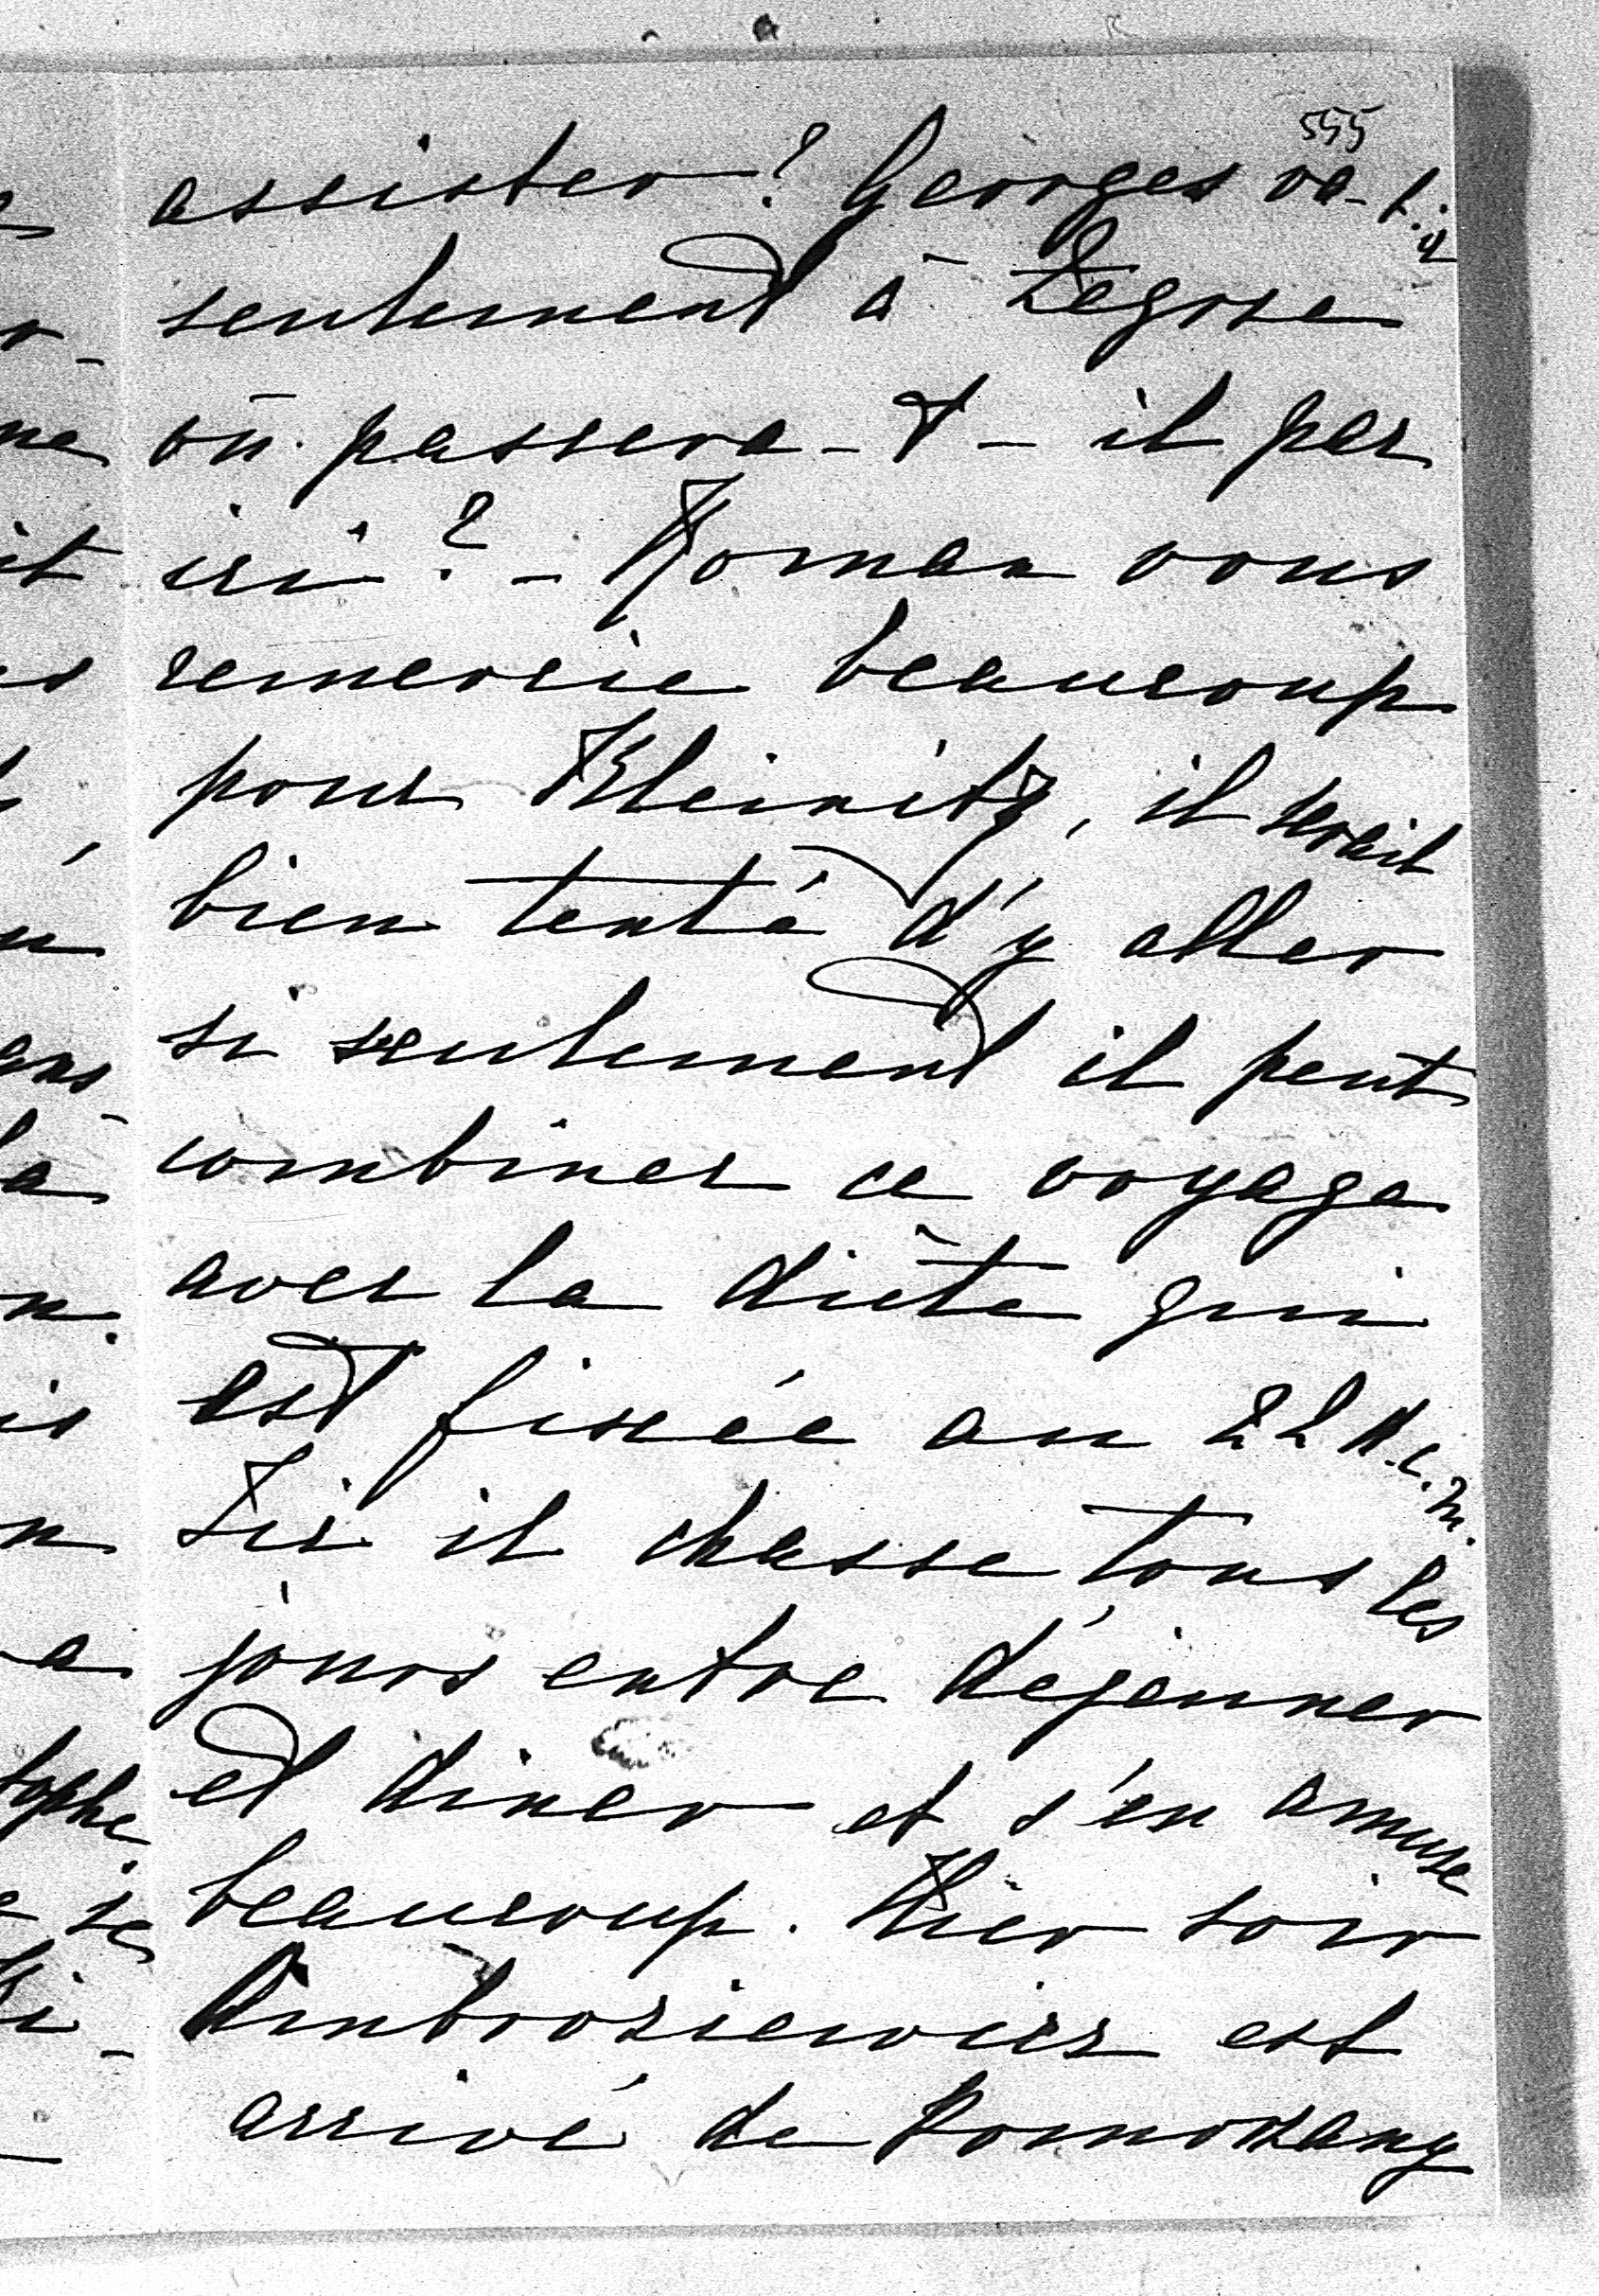 555
assister? Georges va-t-il
seulement à Zegrse
où passera-t-il par
ici? - Roman vous
remercie beaucoup
pour Kleinitz, il serait
bien tenté d'y aller
si seulement il peut
combiner ce voyage
avec la diète qui
est fixée au 22 d.c.m.
Ici il chasse tous les
jours entre déjeuner
et diner et s'en amuse
beaucoup. Hier soir
Ambroziewicz est
arrivé de Pomorzany